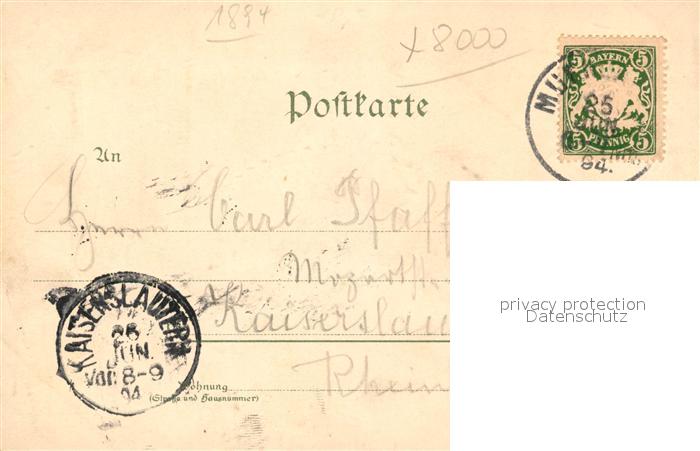 1894
x8000
5 BAYERN 5
5 PFENNIG 5
25
JUN.
94.
Postkarte
An
Herrn Carl Pfaff
Mozartst.
Kaiserslau
Rhein
KAISERSLAUTERN
26
JUN.
Vor. 8-9
94
Wohnung
(Straße und Hausnummer)
privacy protection
Datenschutz